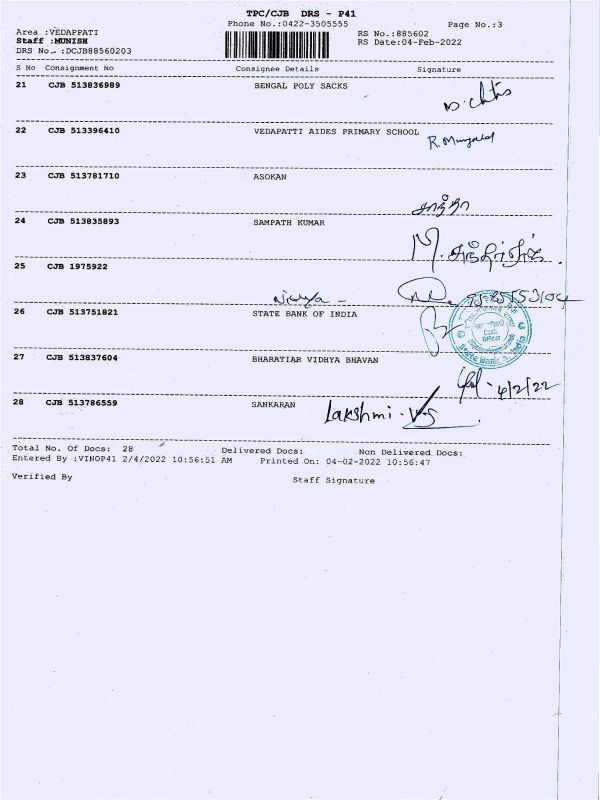 TPC/CJB DRS - P41
Phone No.:0422-3505555
Page No.:3
Area :VEDAPPATI
RS No.:885602
Staff :MUNISH
RS Date:04-Feb-2022
DRS No.. :DCJB88560203
S No Consignment No Consignee Details Signature
21 CJB 513836989 BENGAL POLY SACKS
22 CJB 513396410 VEDAPATTI AIDES PRIMARY SCHOOL
23 CJB 513781710 ASOKAN
24 CJB 513835893 SAMPATH KUMAR
25 CJB 1975922
26 CJB 513751821 STATE BANK OF INDIA
27 CJB 513837604 BHARATIAR VIDHYA BHAVAN
4/2/22
28 CJB 513786559 SANKARAN Lakshmi. V.S
Total No. Of Docs: 28 Delivered Docs: Non Delivered Docs:
Entered By :VINOP41 2/4/2022 10:56:51 AM Printed On: 04-02-2022 10:56:47
Verified By Staff Signature